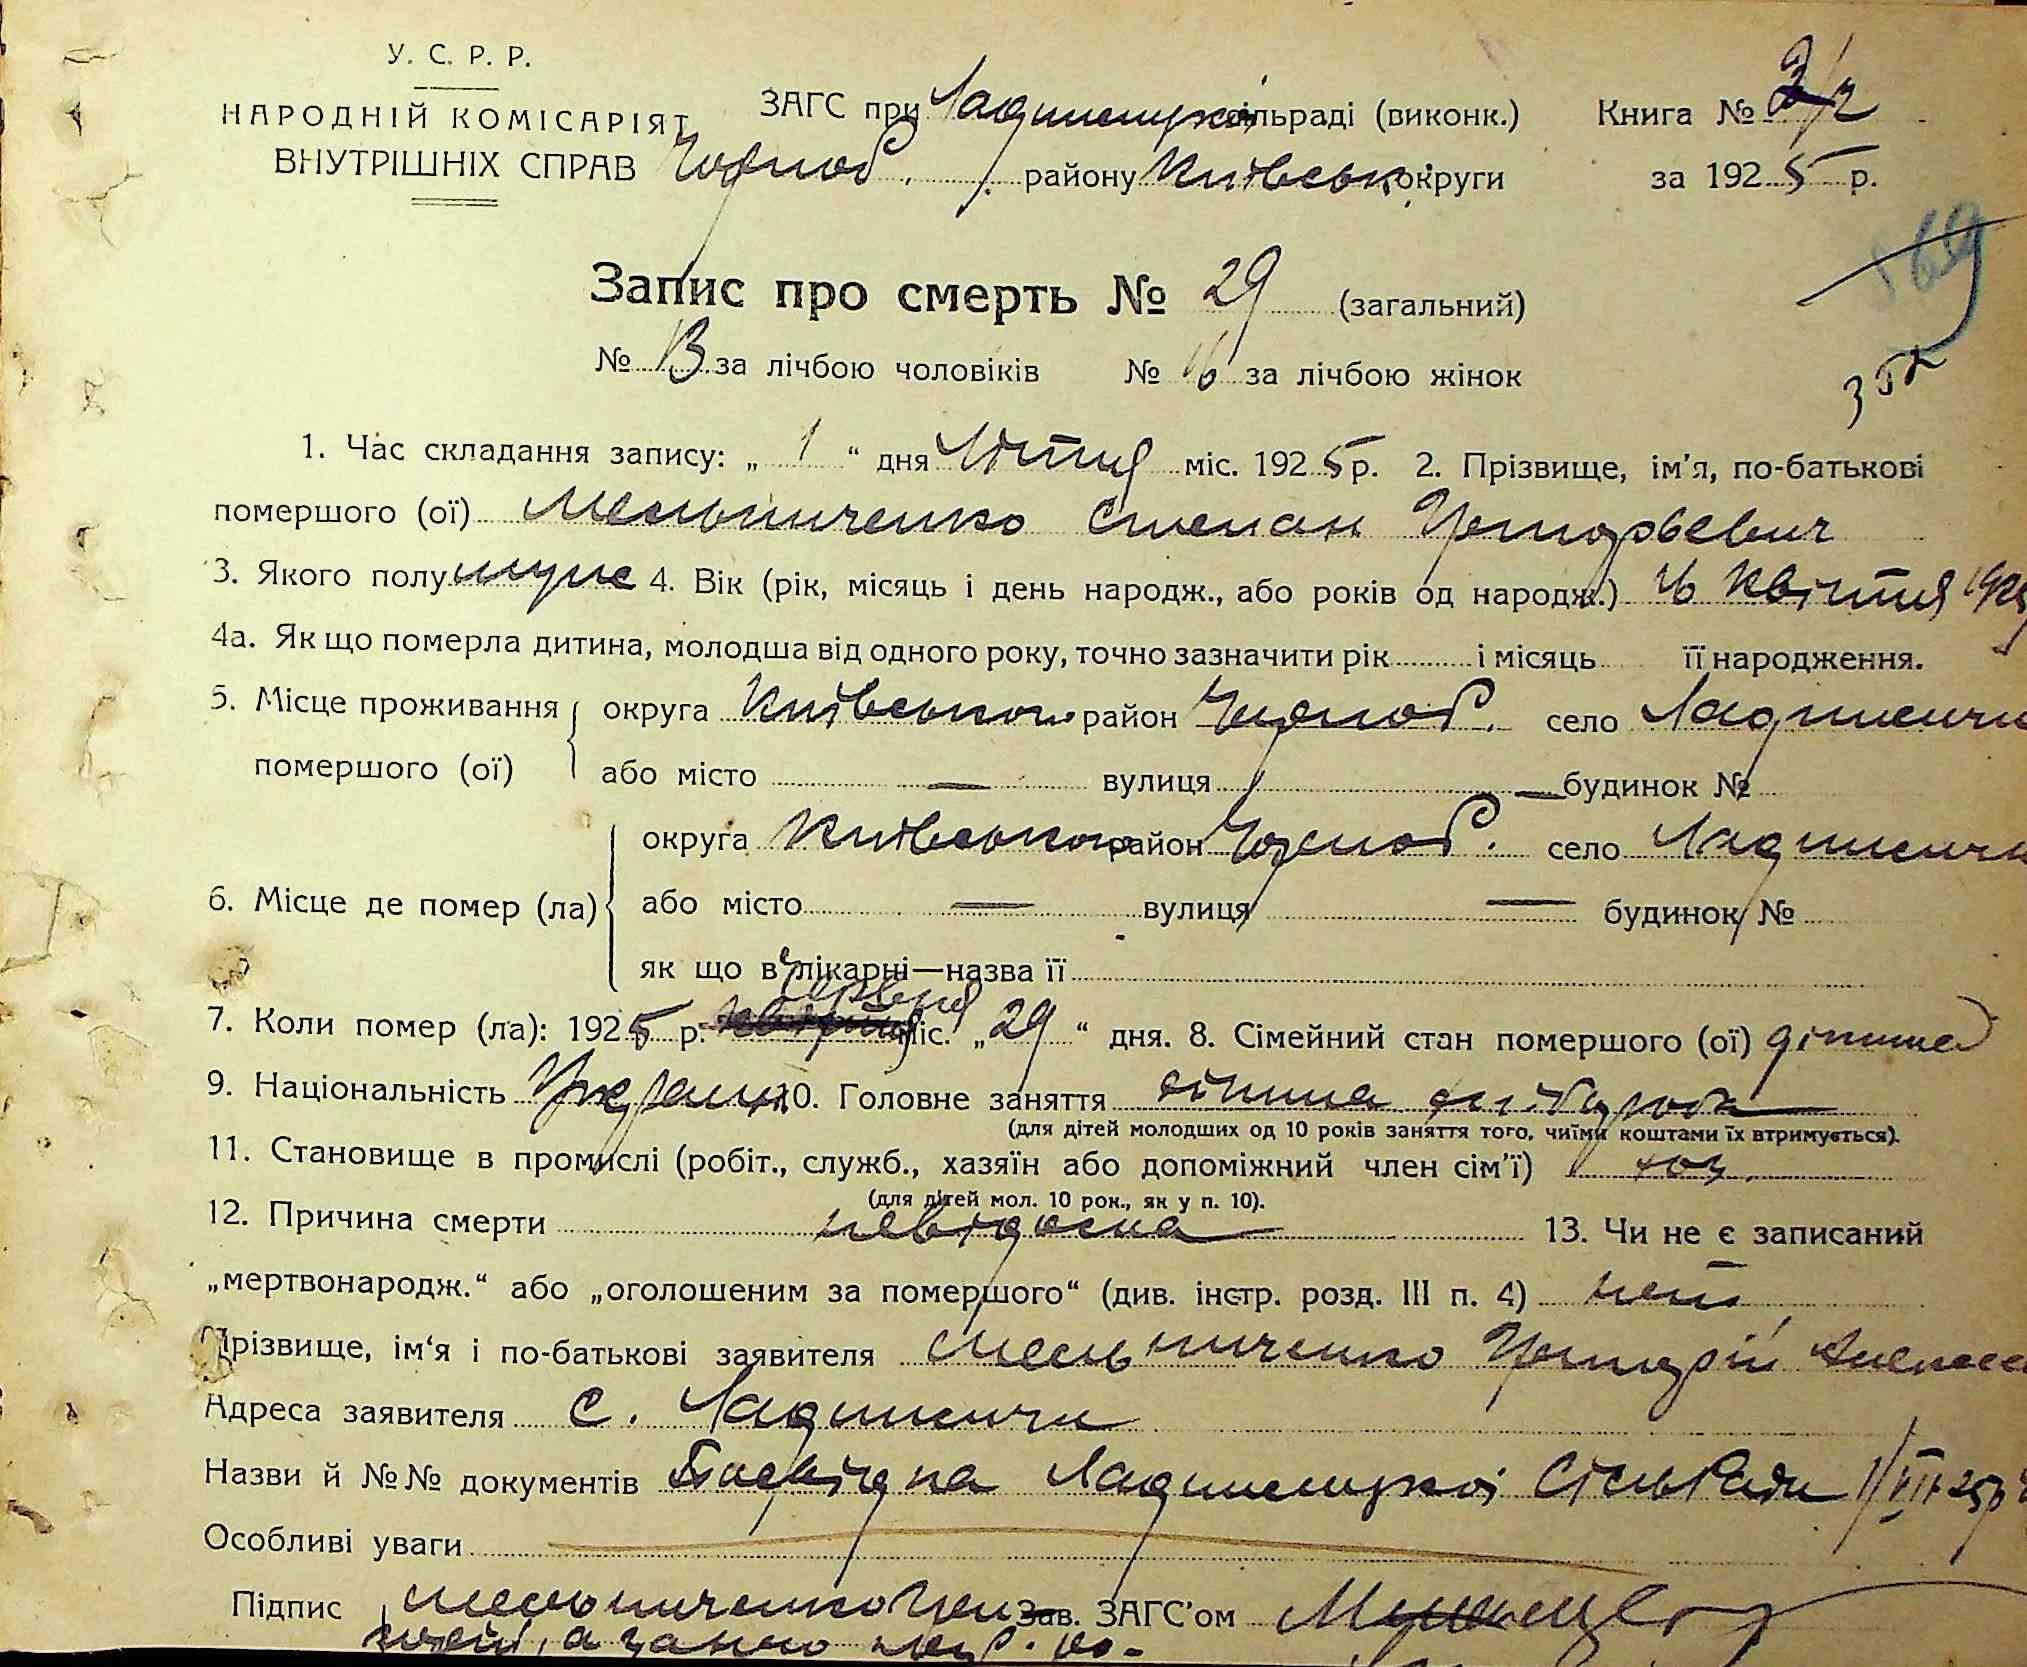 У. С. Р. Р.
НАРОДНІЙ КОМІСАРІЯТ
ВНУТРІШНІХ СПРАВ
ЗАГС при Ладижицькій сільраді (виконк.)
Чорноб. району Київськ. округи
Книга № 2
за 1925 р.
569
352
Запис про смерть № 29 (загальний)
№ 13 за лічбою чоловіків № 16 за лічбою жінок
1. Час складання запису: „ 1 “ дня Літня міс. 1925 р. 2. Прізвище, ім'я, по-батькові
помершого (ої) Мельниченко Степан Григорьевич
3. Якого полу муже 4. Вік (рік, місяць і день народж., або років од народж.) 16 Квітня 1925
4а. Як що померла дитина, молодша від одного року, точно зазначити рік і місяць її народження.
5. Місце проживання помершого (ої) округа Київською район Чорноб. село Ладижичи
або місто — вулиця — будинок №
6. Місце де помер (ла) округа Київською район Чорноб. село Ладижичи
або місто — вулиця — будинок №
як що в лікарні—назва її
червня
7. Коли помер (ла): 1925 р. міс. „ 29 “ дня. 8. Сімейний стан помершого (ої) дітина
9. Національність Україн. 10. Головне заняття дітина
(для дітей молодших од 10 років заняття того, чиїми коштами їх втримується).
11. Становище в промислі (робіт., служб., хазяїн або допоміжний член сім'ї) хоз.
(для дітей мол. 10 рок., як у п. 10).
12. Причина смерти невідома 13. Чи не є записаний
„мертвонародж.“ або „оголошеним за помершого“ (див. інстр. розд. III п. 4) нет
Прізвище, ім'я і по-батькові заявителя Мельниченко Григорій
Адреса заявителя с. Ладижичи
Назви й №№ документів Посвідка Ладижицької СільРади 1/VII-25р
Особливі уваги
Підпис Мельниченко Зав. ЗАГС'ом